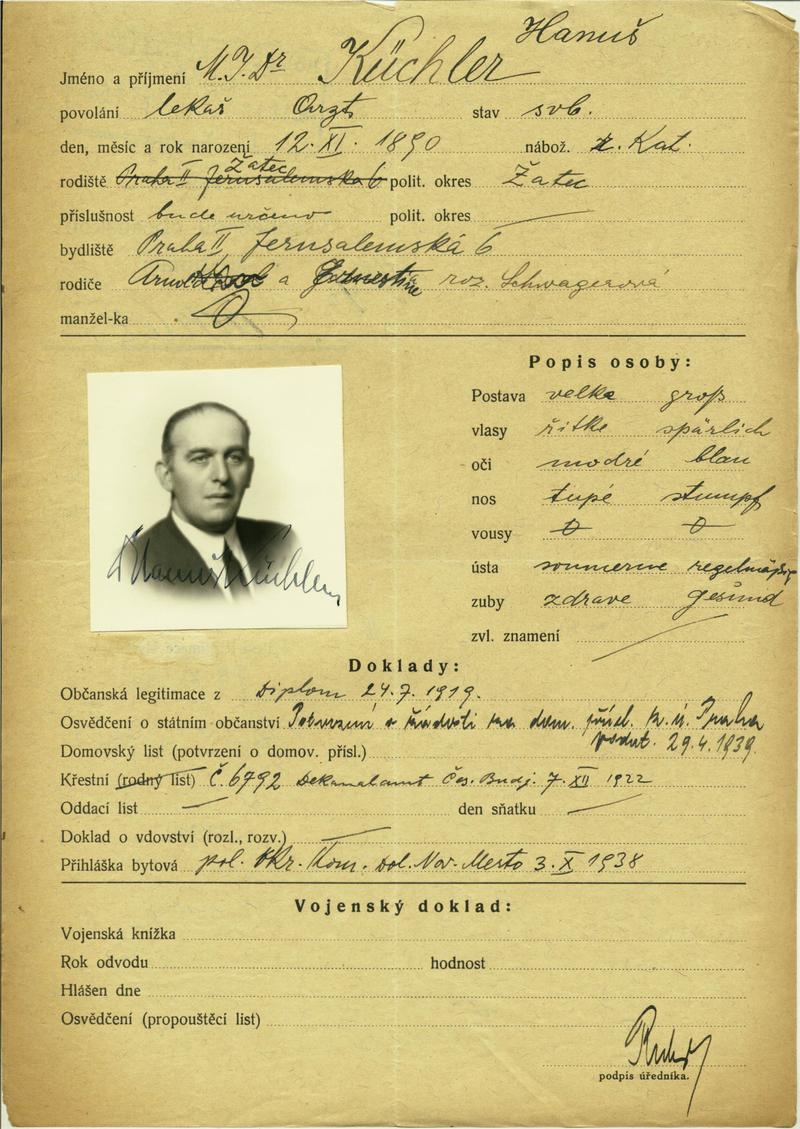 Hanuš
Jméno a příjmení M.U.Dr Küchler
povolání lekař Arzt stav svb.
den, měsíc a rok narození 12. XI. 1890 nábož. ř. Kat.
Žatec
rodiště Praha II Jerusalemska 6 polit. okres Žatec
příslušnost bude určeno polit. okres
bydliště Praha II Jerusalemská 6
rodiče Arnold a Ernestine roz. Schwagerová
manžel-ka
Popis osoby:
Postava velka groß
vlasy řitke spärlich
oči modré blau
nos tupé stumpf
vousy 0 0
ústa soumerne regelmäßig
zuby zdrave gesund
zvl. znamení
Dr Hanuš Küchler
Doklady:
Občanská legitimace z Diplom 24.7.1919.
Osvědčení o státním občanství Potvrzení o žádosti na dom. přísl. Praha
29.4.1939
Domovský list (potvrzení o domov. přísl.)
Křestní (rodný list) Č. 6792 Dekanalamt Čes. Budj. 7. XII 1922
Oddací list den sňatku
Doklad o vdovství (rozl., rozv.)
Přihláška bytová pol. Okr. Kom. Dol. Nov. Mesto 3. X 1938
Vojenský doklad:
Vojenská knížka
Rok odvodu hodnost
Hlášen dne
Osvědčení (propouštěcí list)
podpis úředníka.